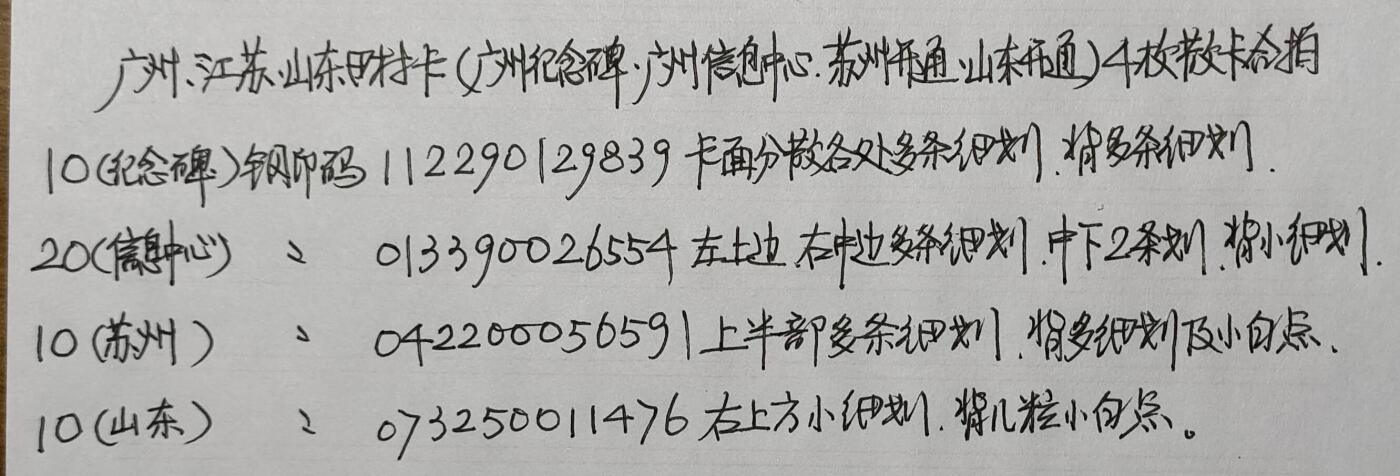 广州、江苏、山东田村卡(广州纪念碑、广州信息中心、苏州开通、山东开通)4枚散卡合拍
10(纪念碑)钢印码 112290129839 卡面分散各处多条细划、背多条细划.
20(信息中心) 〃 013390026554 左上边、右中边多条细划、中下2条划、背小细划.
10(苏州) 〃 042200056591 上半部多条细划、背多细划及小白点.
10(山东) 〃 073250011476 右上方小细划、背几粒小白点。